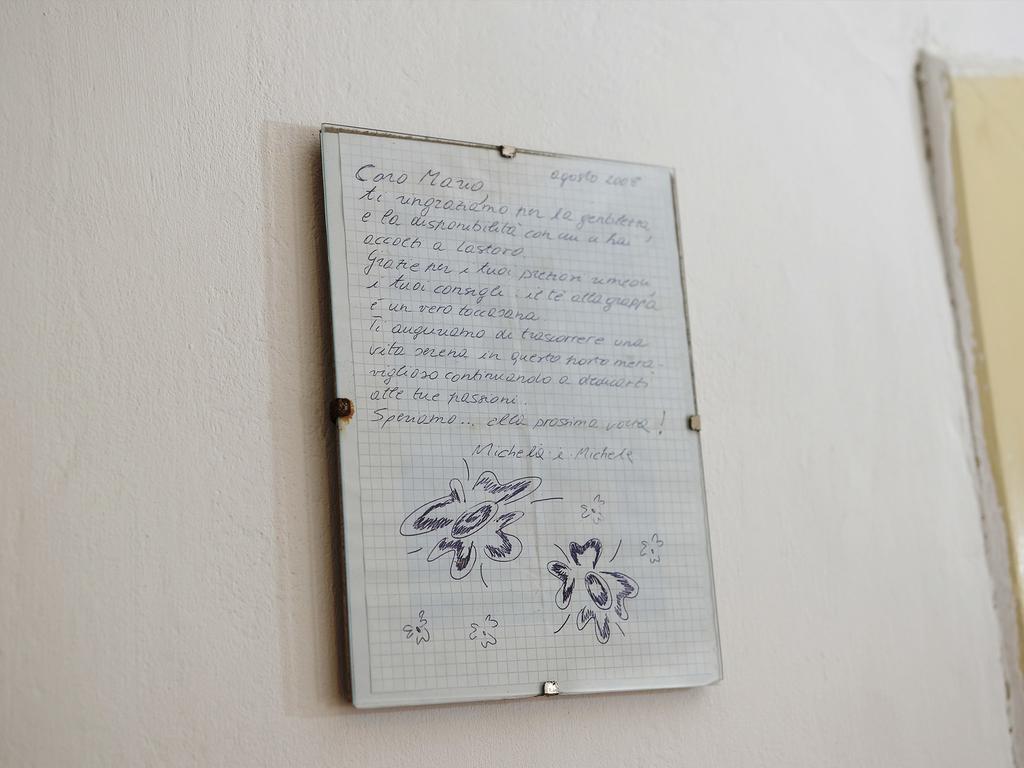 Caro Mario, agosto 2008
ti ringraziamo per la gentilezza
e la disponibilità con cui ci hai
accolti a Lastovo.
Grazie per i tuoi preziosi rimedi
i tuoi consigli. il tè alla grappa
è un vero toccasana
Ti auguriamo di trascorrere una
vita serena in questo posto mera-
viglioso continuando a dedicarti
alle tue passioni..
Speriamo... alla prossima volta!
Michela e Michele